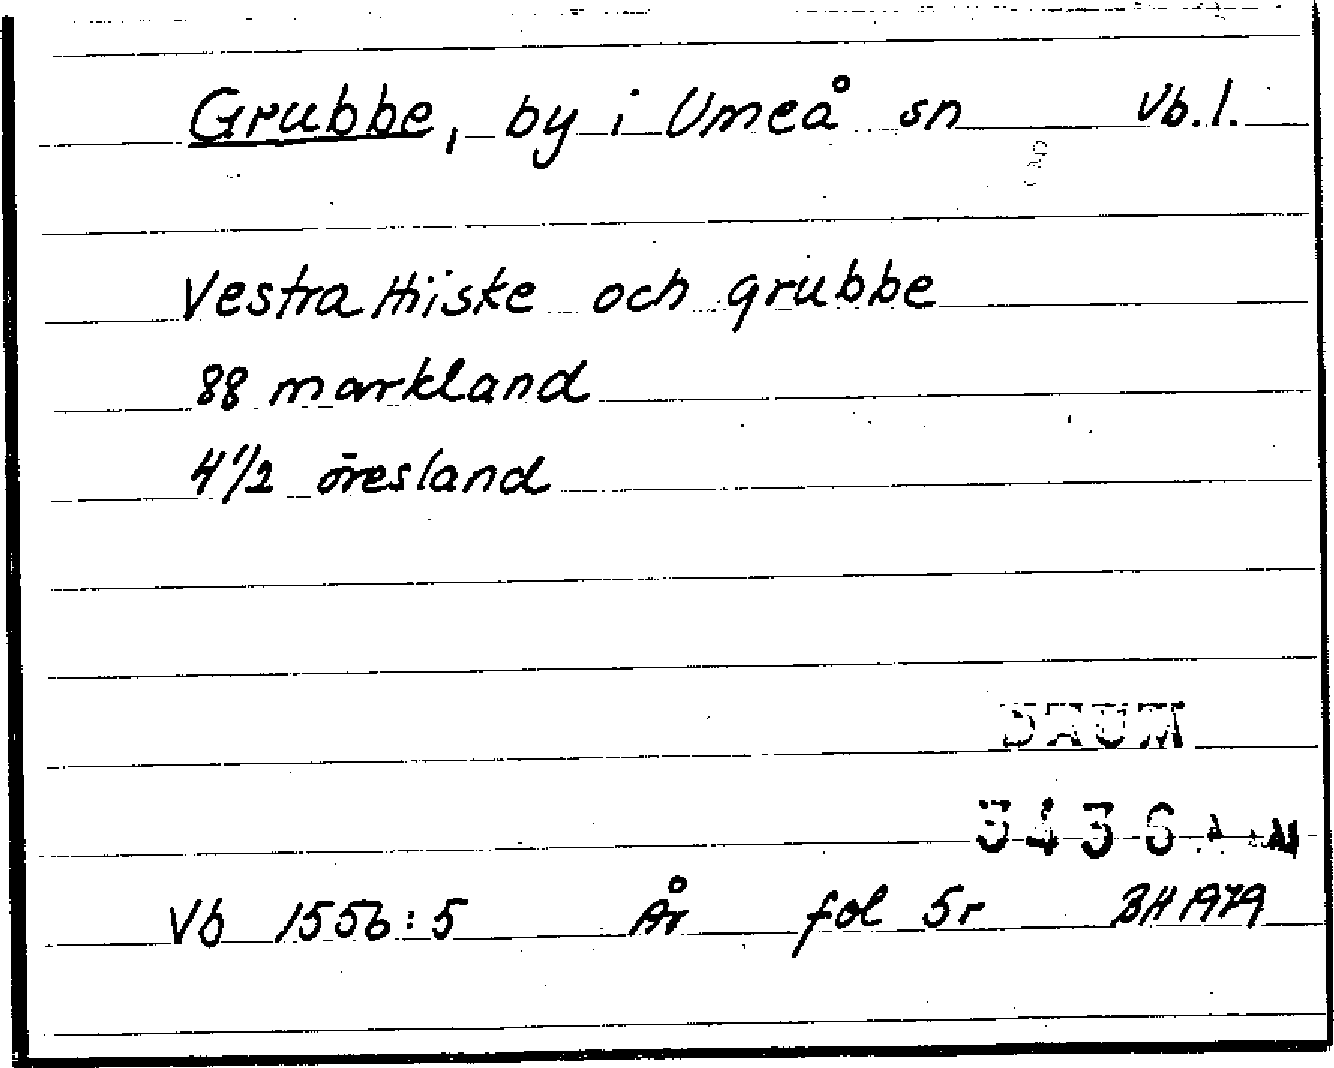 Grubbe, by i Umeå sn Vb.l.
Vestra Hiiske och grubbe
88 markland
4 1/2 öresland
DAUM
3436
Vb 1556:5 År fol 5r BH 1979